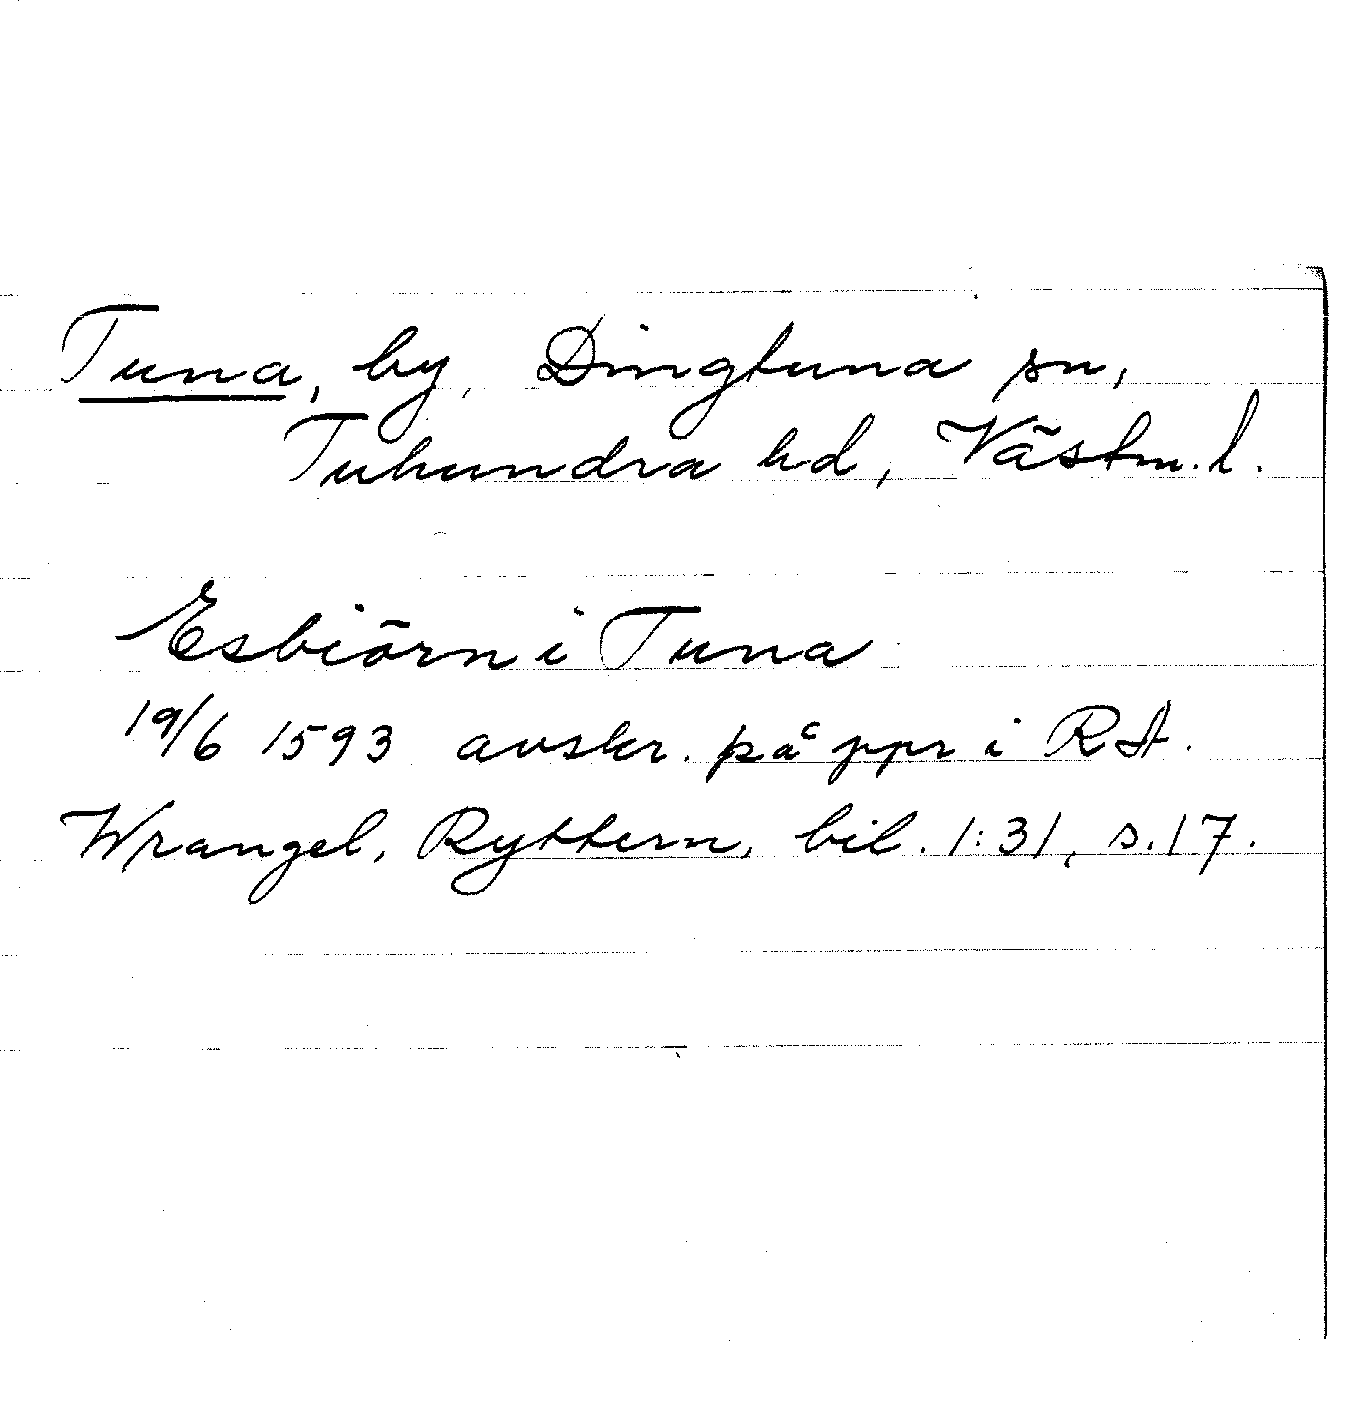 Tuna, by, Dingtuna sn,
Tuhundra hd, Västm. l.
Esbiörn i Tuna
19/6 1593 avskr. på ppr i RA.
Wrangel, Ryttern, bil. 1:31, s. 17.